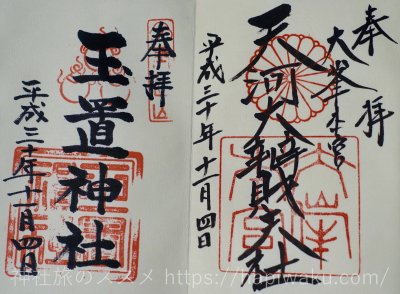 奉拝
大峯本宮
天河大辨財天社
平成三十年十一月四日
奉拝
玉置神社
平成三十年十一月四日
神社旅のススメ https://hapiwaku.com/